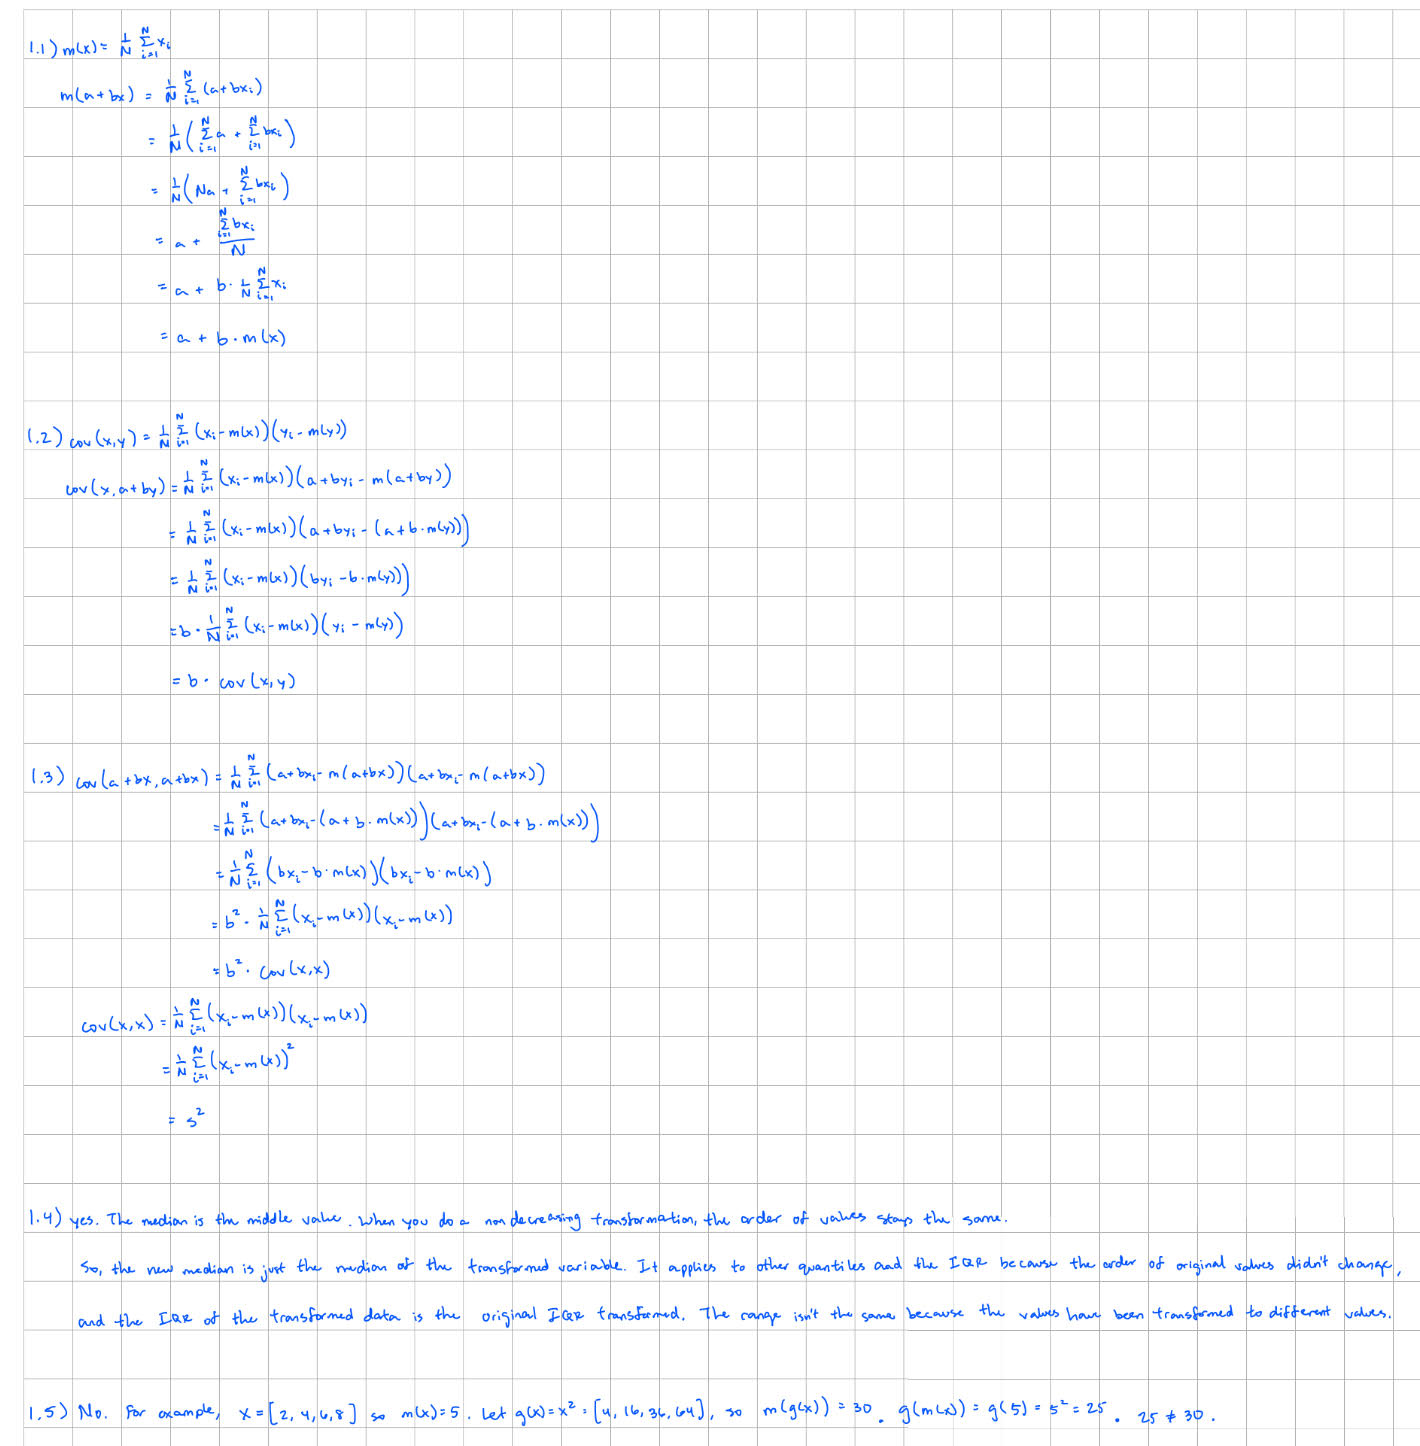 1.1) m(x) = 1/N Σ_{i=1}^{N} x_i
m(a+bx) = 1/N Σ_{i=1}^{N} (a+bx_i)
= 1/N (Σ_{i=1}^{N} a + Σ_{i=1}^{N} bx_i)
= 1/N (Na + Σ_{i=1}^{N} bx_i)
= a + (Σ_{i=1}^{N} bx_i)/N
= a + b · 1/N Σ_{i=1}^{N} x_i
= a + b · m(x)
1.2) cov(x,y) = 1/N Σ_{i=1}^{N} (x_i - m(x))(y_i - m(y))
cov(x, a+by) = 1/N Σ_{i=1}^{N} (x_i - m(x))(a+by_i - m(a+by))
= 1/N Σ_{i=1}^{N} (x_i - m(x))(a+by_i - (a+b·m(y)))
= 1/N Σ_{i=1}^{N} (x_i - m(x))(by_i - b·m(y)))
= b · 1/N Σ_{i=1}^{N} (x_i - m(x))(y_i - m(y))
= b · cov(x,y)
1.3) cov(a+bx, a+bx) = 1/N Σ_{i=1}^{N} (a+bx_i - m(a+bx))(a+bx_i - m(a+bx))
= 1/N Σ_{i=1}^{N} (a+bx_i - (a+b·m(x)))(a+bx_i - (a+b·m(x)))
= 1/N Σ_{i=1}^{N} (bx_i - b·m(x))(bx_i - b·m(x))
= b² · 1/N Σ_{i=1}^{N} (x_i - m(x))(x_i - m(x))
= b² · cov(x,x)
cov(x,x) = 1/N Σ_{i=1}^{N} (x_i - m(x))(x_i - m(x))
= 1/N Σ_{i=1}^{N} (x_i - m(x))²
= s²
1.4) yes. The median is the middle value. When you do a non decreasing transformation, the order of values stays the same.
So, the new median is just the median of the transformed variable. It applies to other quantiles and the IQR because the order of original values didn't change,
and the IQR of the transformed data is the original IQR transformed. The range isn't the same because the values have been transformed to different values.
1.5) No. For example, x = [2, 4, 6, 8] so m(x) = 5. Let g(x) = x² = [4, 16, 36, 64], so m(g(x)) = 30. g(m(x)) = g(5) = 5² = 25. 25 ≠ 30.